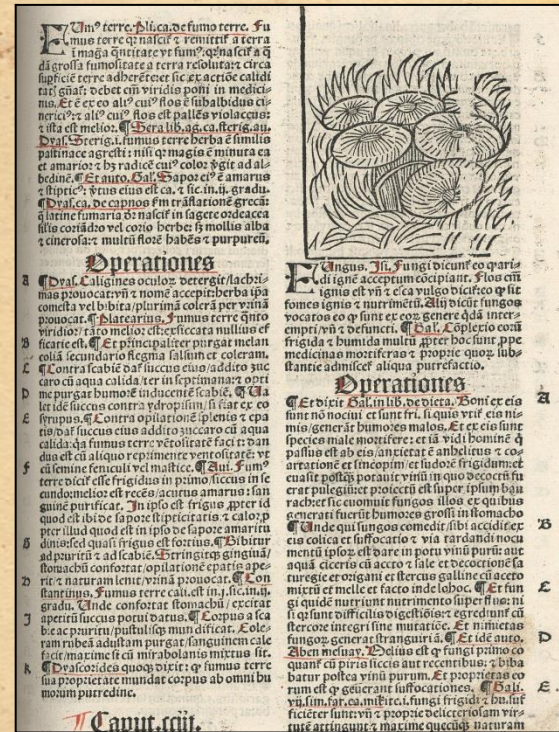 FUm⁹ terre. Pli. ca. de fumo terre. Fu
mus terre qꝛ nascit̄ ⁊ remittit̄ a terra
dā grossa fumositate a terra resoluta: ⁊ circa
supficiē terre adherēte: ⁊ sic ex actiōe calidi
debet em̄ viridis poni in medici-
nis. Et ē ex eo ali⁹ cui⁹ flos ē subalbidus ci-
nerici⁹: ⁊ ali⁹ cui⁹ flos est pallēs violaceus:
⁊ ista est melior. ¶ Sera. lib. ag. ca. sterig. au.
Dyas. Sterig. i. fumus terre herba ē similis
pastinace agresti: nisi qꝛ magis ē minuta ea
et amarior ⁊ hꝫ radicē cui⁹ color v̄git ad al-
bedinē. ¶ Et auto. Gal. Sapor ei⁹ ē amarus
⁊ stiptic⁹: v̄tus eius est ca. ⁊ sic. in .ij. gradu.
¶ Dyas. ca. de capnos fm trāslationē grecā:
ꝙ latine fumaria dr̄ nascit̄ in sagete ordeacea
cinerosa: ⁊ multū florē habēs ⁊ purpureū.
Operationes
A ¶ Dyas. Caligines oculoꝝ detergit/lachri-
mas prouocat: vn̄ ⁊ nomē accepit: herba ip̄a
comesta vel bibita/plurimā colerā per vrinā
prouocat. ¶ Platearius. Fumus terre q̄nto
viridior/tāto melior est: exsiccata nullius ef
B ficatie est. ¶ Et principaliter purgat melan
coliā secundario flegma salsum et coleram.
C ¶ Contra scabiē dat̄ succus eius/addito zuc
caro cū aqua calida/ter in septimana: ⁊ opti
D me purgat humorē inducentē scabiē. ¶ Ua
let idē succus contra ydropisim/si fiat ex eo
E syrupus. ¶ Contra opilationē splenis ⁊ epa
tis/dat̄ succus eius addito zuccaro cū aqua
calida: qꝛ fumus terre vētositatē facit: ⁊ dan
dus est cū aliquo reprimente vētositatē: vt
F cū semine feniculi vel mastice. ¶ Aui. Fum⁹
terre dicit̄ esse frigidus in primo/siccus in se
cundo: melior est recēs/acutus amarus: san
guinē purificat. In ipso est frigus ꝓpter id
quod est ibi de sapore stipticitatis: ⁊ calor ꝓ
pter illud quod est in ipso de sapore amaritu
G dinis: sed quasi frigus est fortius. ¶ Bibitur
ad pruritū ⁊ ad scabiē. Stringitqꝫ gingiuā/
stomachū confortat/opilationē epatis ape-
H rit: ⁊ naturam lenit/vrinā prouocat. ¶ Con
stantinus. Fumus terre cali. est in .j. sic. in .ij.
gradu. Unde confortat stomachū/excitat
J apetitū succus potui datus. ¶ Corpus a sca
bie: ac pruritu/pustulisqꝫ mundificat. Cole-
ram rubeā adustam purgat/sanguinem cale
facit/maxime si cū mirabolanis mixtus sit.
K ¶ Dyascorides quoqꝫ dixit: ꝙ fumus terre
sua proprietate mundat corpus ab omni hu
morum putredine.
¶ Caput. cciij.
FUngus. Isi. Fungi dicunt̄ eo ꝙ ari-
di ignē acceptum cōcipiant. Flos em̄
ignis est vn̄ ⁊ esca vulgo dicit̄: eo ꝙ sit
fomes ignis ⁊ nutrimētū. Alij dicūt fungos
vocatos eo ꝙ sunt ex eoꝝ genere q̄dā inter-
empti/vn̄ ⁊ defuncti. ¶ Gal. Cōplexio eorū
frigida ⁊ humida multū ꝓpter hoc sunt ꝓpe
medicinas mortiferas ⁊ proprie quoꝝ sub-
stantie admiscet̄ aliqua putrefactio.
Operationes
A ¶ Et dixit Gal. in lib. de dieta. Boni ex eis
sunt nō nociui et sunt fri. si quis vtit̄ eis ni-
mis/generāt humores malos. Et ex eis sunt
species male mortifere: et iā vidi hominē ꝙ
passus est ab eis/anxietatē anhelitus ⁊ co-
artationē et sincopim/et sudorē frigidum: et
euasit postqꝫ potauit vinū in quo decoctū fu
erat pulegiū: et proiectū est super ipsum bau
rach: et sic euomuit fungos illos ex quibus
generati fuerūt humores grossi in stomacho
B ¶ Unde qui fungos comedit/sibi accidit ex
eis colica et suffocatio ⁊ via tardandi nocu
mentū ipsoꝝ est dare in potu vinū purū: aut
aquā ciceris cū aceto ⁊ sale et decoctionē sa
turegie et origani et stercus galline cū aceto
C mixtū et melle et facto inde lohoc. ¶ Et fun
gi quidē nutriunt nutrimento superfluo: ⁊ si
fri qꝛ sunt difficilis digestiōis: ⁊ egrediunt̄ cū
stercore integri sine mutatiōe. Et nimietas
D fungoꝝ generat stranguiriā. ¶ Et idē auto.
Aben mesuay. Melius est ꝙ fungi primo co
quant̄ cū piris siccis aut recentibus: ⁊ biba
batur postea vinū purum. Et proprietas eo
E rum est ꝙ generant suffocationes. ¶ Gali.
ficiēter sunt: vn̄ ⁊ proprie delectiosam vir-
tutē attingunt ⁊ maxime quecūqꝫ naturam